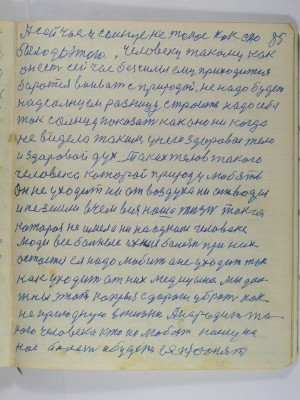 А сейчас и солнце не такое как оно 85
было до этого, человеку такому как
он есть сейчас без силы ему приходится
бороться воивать с природой, не надо будет
над солнцем разницу, строить надо себя
так солнцу показать как оно ни когда
не видело таким у него здоровае тело
и здоровой дух такех телов такого
человека каторой природу любять
Он не уходит ни от воздуха ни от воды
и не земли в чем вся наша жизня такая
которая не имела ни на одним человеке
Люди все больные их ни болят при них
остаётся надо любить а не уходит так
как уходит от них медицина. Мы дол
жны этот с дороги убрать как
не природную в жизни. А народит та-
кого человека кто полюбит
ное болеть и будет